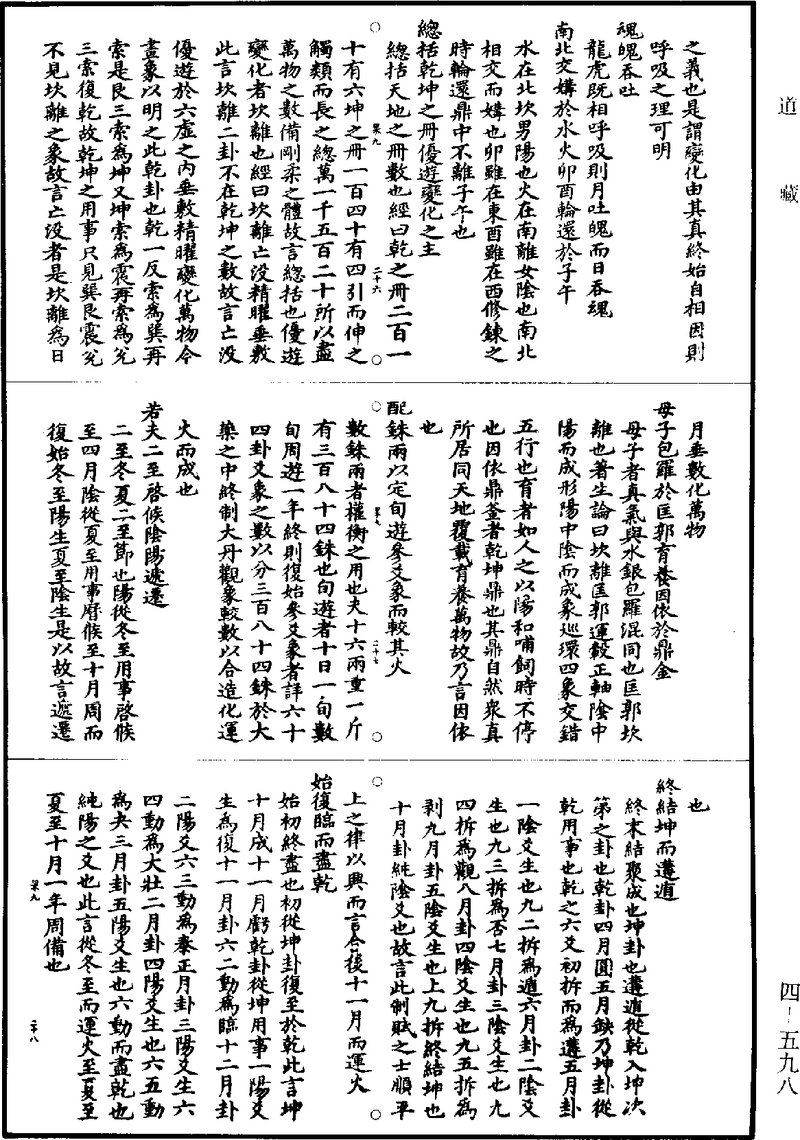 道藏
之義也是謂變化由其真終始自相因則
呼吸之理可明
魂魄吞吐
龍虎既相呼吸則月吐魄而日吞魂
南北交媾於水火卯酉輪還於子午
水在北坎男陽也火在南離女陰也南北
相交而媾也卯雖在東酉雖在西修鍊之
時輪還鼎中不離子午也
總括乾坤之冊優遊變化之主
總括天地之冊數也經曰乾之冊二百一
十有六坤之冊一百四十有四引而伸之
觸類而長之總萬一千五百二十所以盡
萬物之數備剛柔之體故言總括也優遊
變化者坎離也經曰坎離亡沒精曜垂敷
此言坎離二卦不在乾坤之數故言亡沒
優遊於六虛之內垂敷精曜變化萬物今
畫象以明之此乾卦也乾一反索為巽再
索是艮三索為坤又坤索為震再索為兌
三索復乾故乾坤之用事只見巽艮震兌
不見坎離之象故言亡沒者是坎離為日
月垂敷化萬物
母子包羅於匡郭育養因依於鼎金
母子者真氣與水銀包羅混同也匡郭坎
離也著生論曰坎離匡郭運轂正軸陰中
陽而成形陽中陰而成象巡環四象交錯
五行也育者如人之以陽和哺飼時不停
也因依鼎釜者乾坤鼎也其鼎自然眾真
所居同天地覆載育養萬物故乃言因依
也
配銖兩以定旬遊參爻象而較其火
數銖兩者權衡之用也夫十六兩重一斤
有三百八十四銖也旬遊者十日一旬數
旬周遊一年終則復始參爻象者詳六十
四卦爻象之數以分三百八十四銖於大
藥之中終制大丹觀象較數以合造化運
火而成也
若夫二至啓候陰陽遞遷
二至冬夏二至節也陽從冬至用事啓候
至四月陰從夏至用事曆候至十月周而
復始冬至陽生夏至陰生是以故言遞遷
也
終結坤而遘遁
終末結聚成也坤卦也遘遁從乾入坤次
第之卦也乾卦四月圓五月缺乃坤卦從
乾用事也乾之六爻初拆而為遘五月卦
一陰爻生也九二拆為遁六月卦二陰爻
生也九三拆為否七月卦三陰爻生也九
四拆為觀八月卦四陰爻生也九五拆為
剥九月卦五陰爻生也上九拆終結坤也
十月卦純陰爻也故言此制賦之士順平
上之律以興而言合後十一月而運火
始復臨而盡乾
始初終盡也初從坤卦復至於乾此言坤
十月成十一月虧乾卦從坤用事一陽爻
生為復十一月卦六二動為臨十二月卦
二陽爻六三動為泰正月卦三陽爻生六
四動為大壯二月卦四陽爻生也六五動
為夬三月卦五陽爻生也六動而盡乾也
純陽之爻也此言從冬至而運火至夏至
夏至十月一年周備也
果九
二十六
二十七
果九
二十八
四-五九八